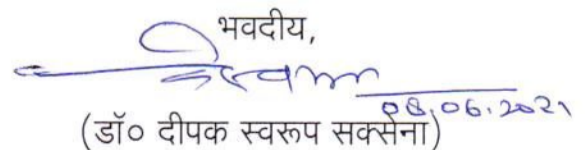 भवदीय,
08.06.2021
(डॉ० दीपक स्वरूप सक्सेना)